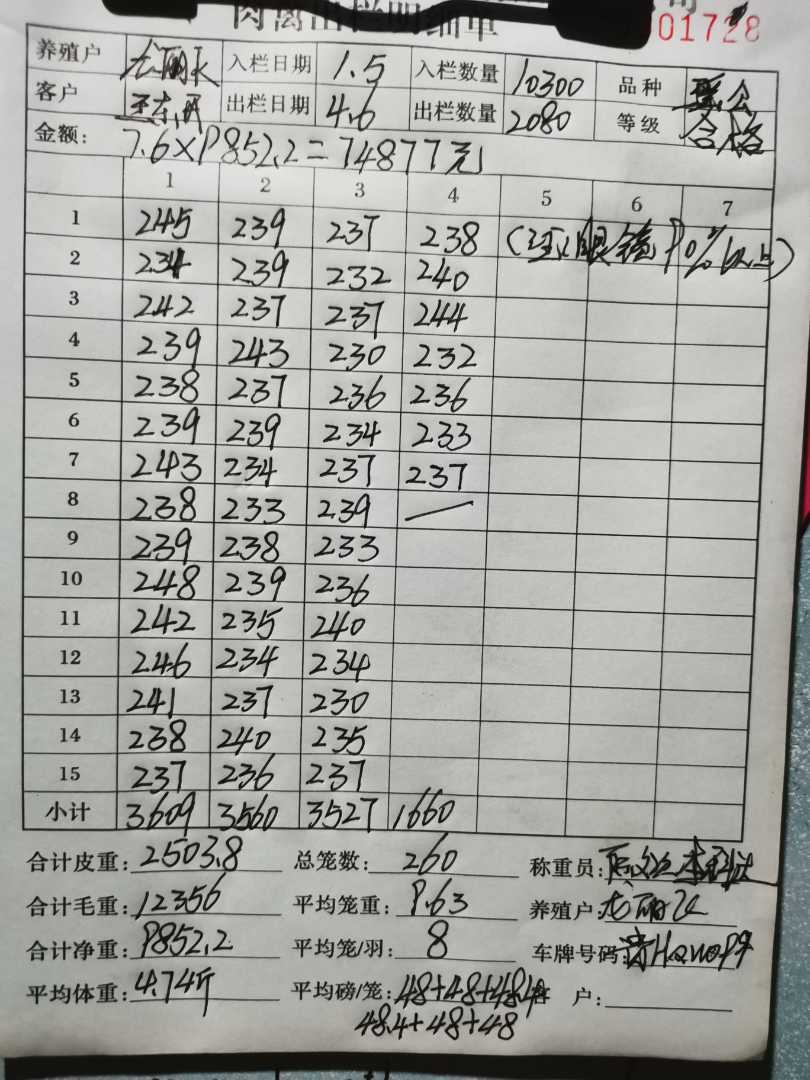 肉禽出栏明细单
001728
养殖户 龙丽 入栏日期 1.5 入栏数量 10300 品种
客户 出栏日期 4.6 出栏数量 2080 等级 合格
金额: 7.6×9852.2=74877元
1 2 3 4 5 6 7
1 245 239 237 238 (眼镜90%以上)
2 234 239 232 240
3 242 237 237 244
4 239 243 230 232
5 238 237 236 236
6 239 239 234 233
7 243 234 237 237
8 238 233 239
9 239 238 233
10 248 239 236
11 242 235 240
12 246 234 234
13 241 237 230
14 238 240 235
15 237 236 237
小计 3609 3560 3527 1660
合计皮重: 2503.8 总笼数: 260 称重员:
合计毛重: 12356 平均笼重: 9.63 养殖户: 龙丽
合计净重: 9852.2 平均笼/羽: 8 车牌号码:
平均体重: 4.74斤 平均磅/笼: 48+48+48.4 户:
48.4+48+48